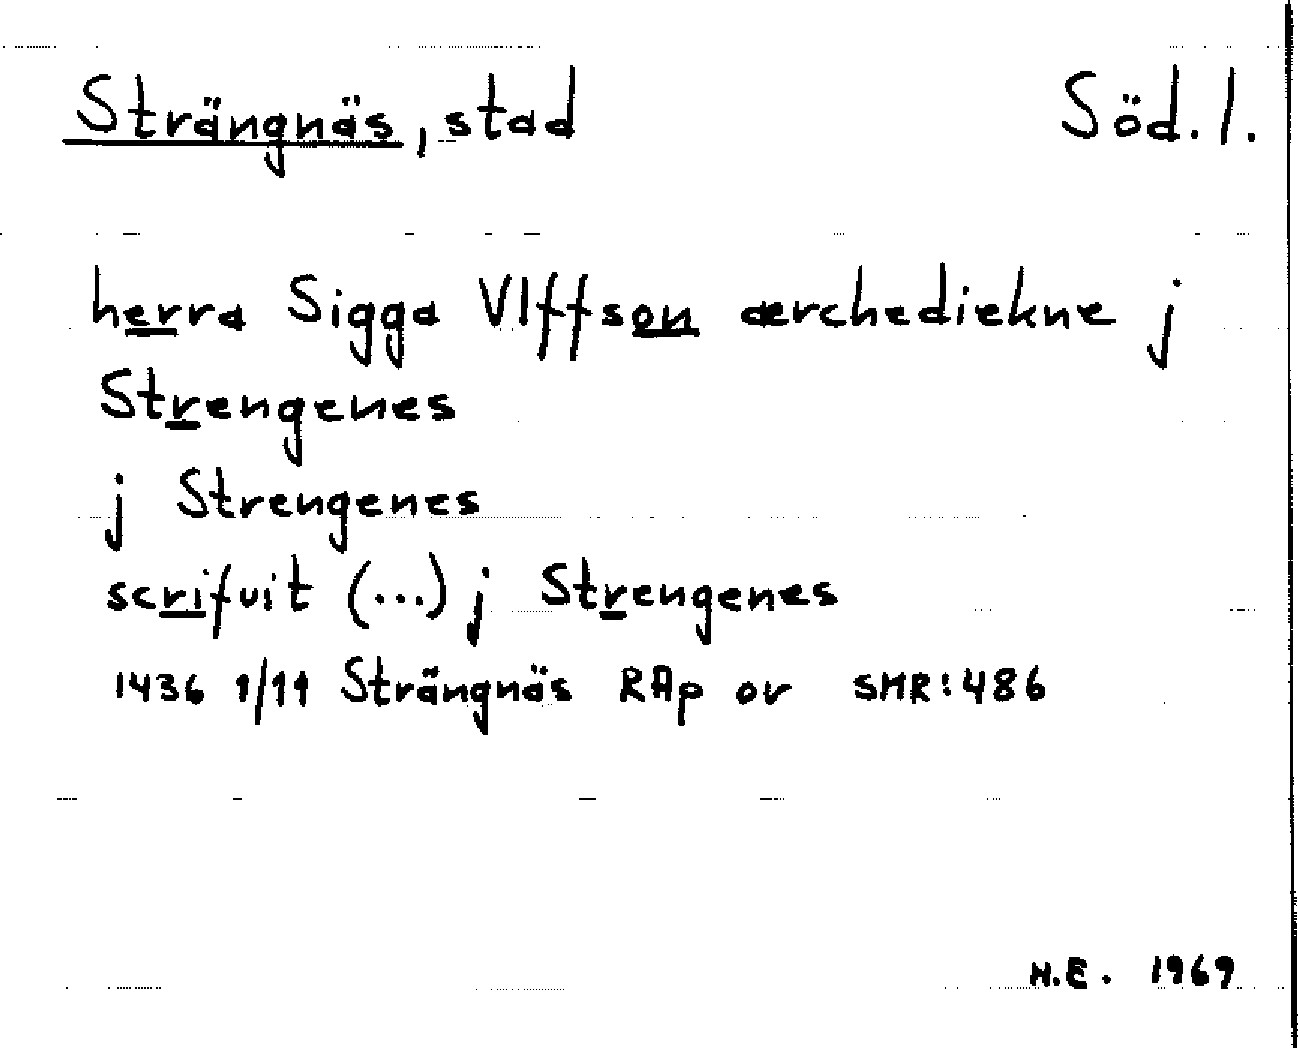 Strängnäs, stad Söd. l.
herra Sigga Vlffson ærchediekne j
Strengenes
j Strengenes
scrifuit (...) j Strengenes
1436 1/11 Strängnäs RAp or SMR:486
H.E. 1969